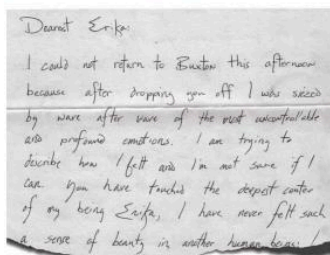 Dearest Erika:
I could not return to Buxton this afternoon
because after dropping you off I was seized
by wave after wave of the most uncontrollable
and profound emotions. I am trying to
describe how I felt and I'm not sure if I
can. You have touched the deepest center
of my being Erika, I have never felt such
a sense of beauty in another human being. I